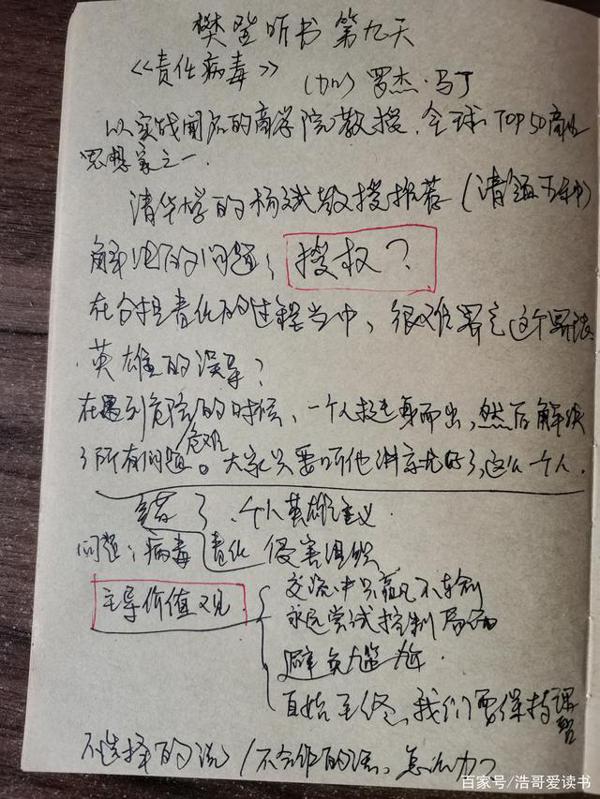 樊登听书 第九天
《责任病毒》 (加) 罗杰·马丁
以实战闻名的商学院教授,全球TOP50商业
思想家之一.
清华大学的杨斌教授推荐(清华
解决的问题; 授权?
在分担责任的过程当中,很难界定这个界线
英雄的误导?
在遇到危险的时候,一个人挺身而出,然后解决
了所有问题危难。大家只要听他讲就好了,这么一个人.
错了,个人英雄主义.
问题:病毒 责任 侵害组织
主导价值观
交流中只赢不输
永远尝试控制局面
避免尴尬.
自始至终,我们要保持理智
不选择的话/不合作的话,怎么办?
百家号/浩哥爱读书